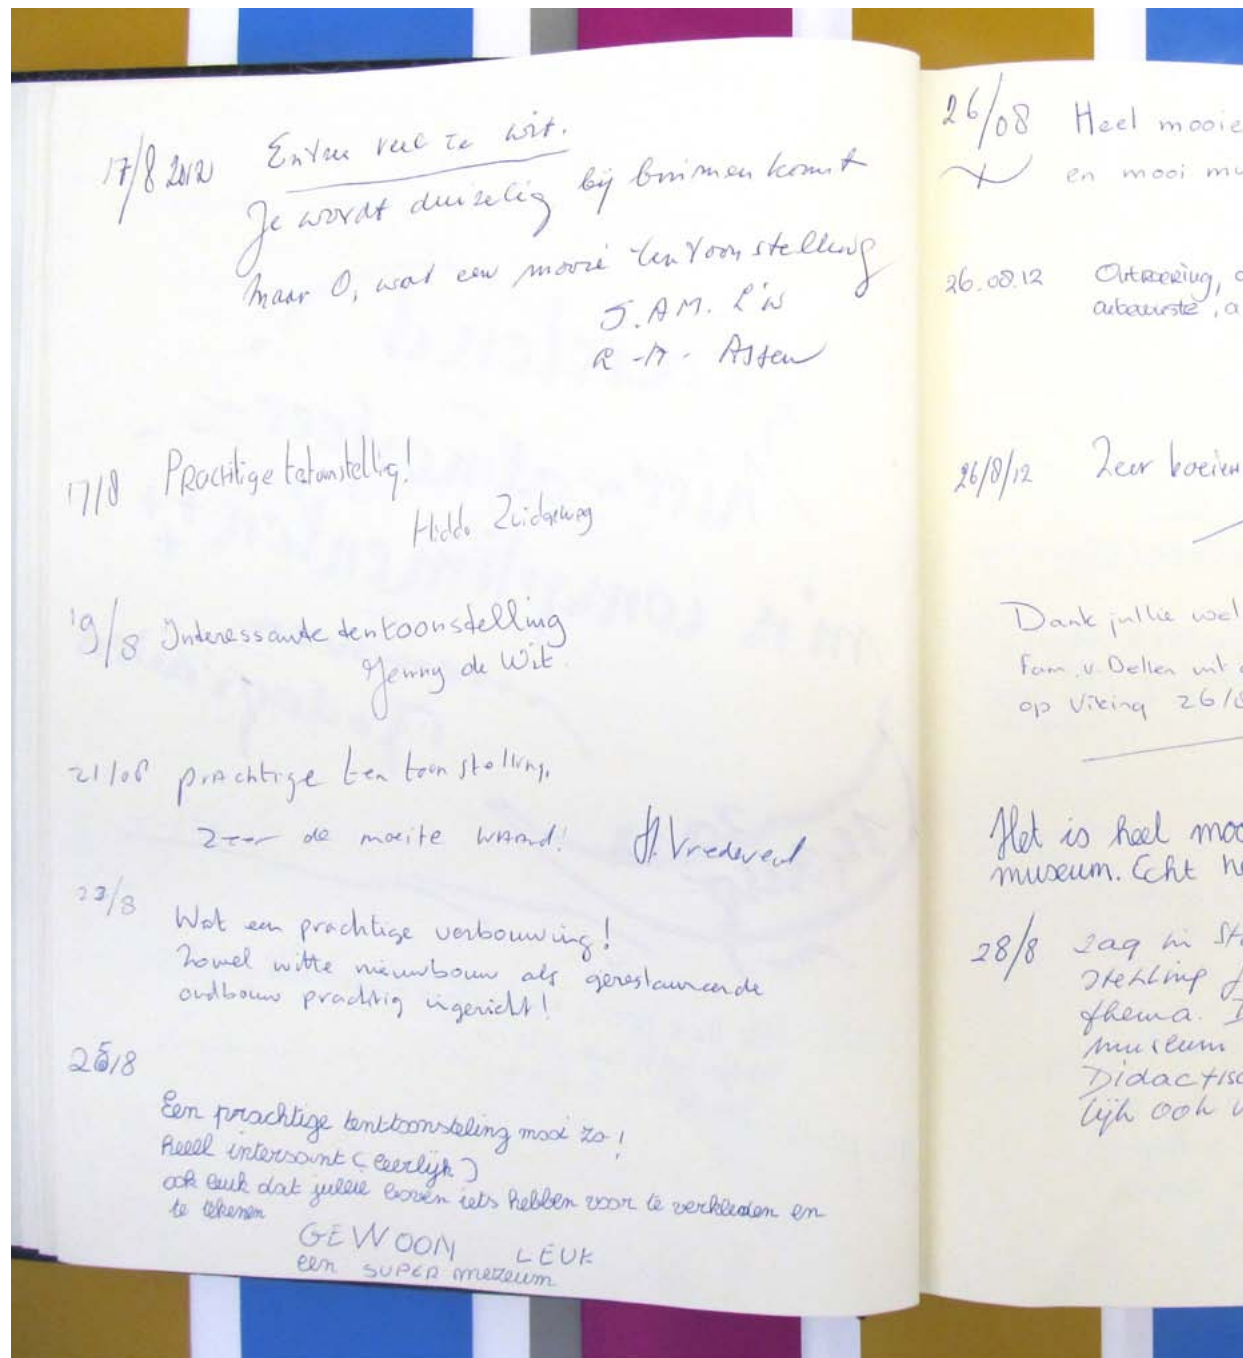 17/8 2012 Entree veel te wit.
Je wordt duizelig bij binnenkomst
Maar O, wat een mooie tentoonstelling
J.A.M.
Assen
17/8 Prachtige tetoonstellig!
Hiddo
19/8 Interessante tentoonstelling
Jenny de Wit
21/08 prachtige tentoonstelling,
Zeer de moeite waard! H. Vredeveld
23/8
Wat een prachtige verbouwing!
Zowel witte nieuwbouw als gerestaureerde
oudbouw prachtig ingericht!
25/8
Een prachtige tenttoonsteling mooi zo!
heeel intersant (leerlijk)
ook leuk dat jullie boven iets hebben voor te verkleden en
te tekenen
GEWOON LEUK
een SUPER mezeum
26/08 Heel mooie
en mooi mu
26.08.12
26/8/12 Zeer boeien
Dank jullie wel
Fam. v. Dellen uit
op Viking 26/8
Het is heel moo
museum. Echt he
28/8 zag in St
stelling
thema.
museum
Didactisc
lijk ook v